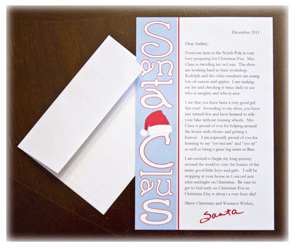 December 2011
Santa Claus
Dear Amber,
Everyone here at the North Pole is very
busy preparing for Christmas Eve. Mrs.
Claus is mending my red suit. The elves
are working hard in their workshop.
Rudolph and the other reindeer are eating
lots of carrots and apples. I am making
my list and checking it twice daily to see
who is naughty and who is nice.
I see that you have been a very good girl
this year! According to my elves, you have
just turned five and have learned to ride
your bike without training wheels. Mrs.
Claus is proud of you for helping around
the house with chores and getting a
I am especially proud of you for
learning to say "yes ma'am" and "yes sir"
as well as being a great big sister to
I am excited to begin my long journey
around the world to visit the homes of the
many good little boys and girls. I will be
stopping at your house in Concord just
after midnight on Christmas. Be sure to
get to bed early on Christmas Eve as
Christmas Day is always a very busy day!
Merry Christmas and Warmest Wishes,
Santa